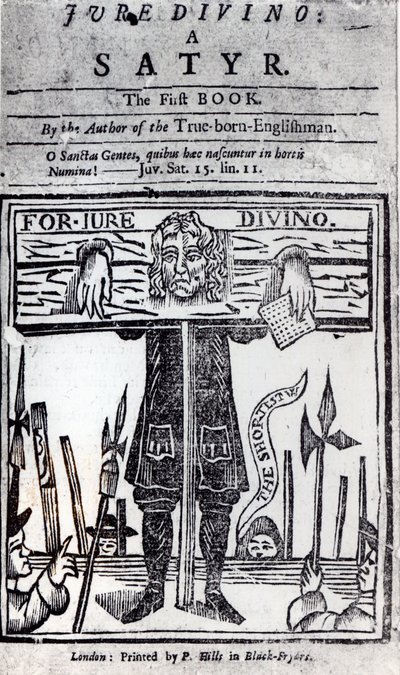 JURE DIVINO:
A
SATYR.
The Firſt BOOK.
By the Author of the True-born-Engliſhman.
O Sanctas Gentes, quibus hæc naſcuntur in hortis
Numina! —— Juv. Sat. 15. lin. 11.
FOR·IURE DIVINO.
THE SHORTEST W
London: Printed by P. Hills in Black-Fryars.